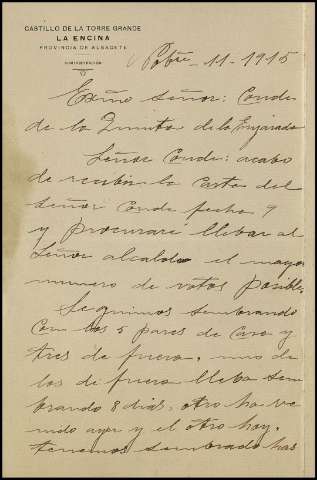 CASTILLO DE LA TORRE GRANDE
LA ENCINA
PROVINCIA DE ALBACETE
11-1915
Exmo Señor: Conde
de la Quinta de la Enjarada
Señor Conde: acabo
de recibir la Carta del
señor Conde fecha 9
y procuraré llebar al
Señor alcalde el mayor
numero de votos posible.
Seguimos sembrando
Con los 5 pares de Casa y
tres de fuera, uno de
los de fuera lleba sem
brando 8 dias, otro ha ve
nido ayer y el otro hoy.
tenemos sembrado has